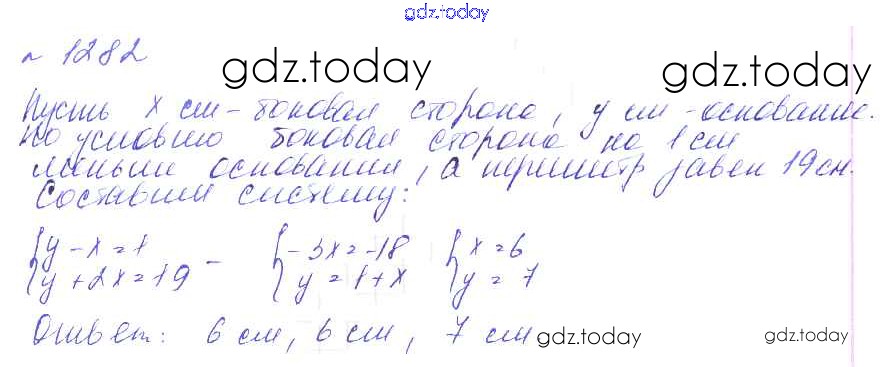 gdz.today
№ 1282
gdz.today gdz.today
Пусть x см - боковая сторона, y см - основание.
По условию боковая сторона на 1 см
меньше основания, а периметр равен 19 см.
Составим систему:
{y - x = 1 - {-3x = -18 {x = 6
{y + 2x = 19 {y = 1 + x {y = 7
Ответ: 6 см, 6 см, 7 см
gdz.today gdz.today